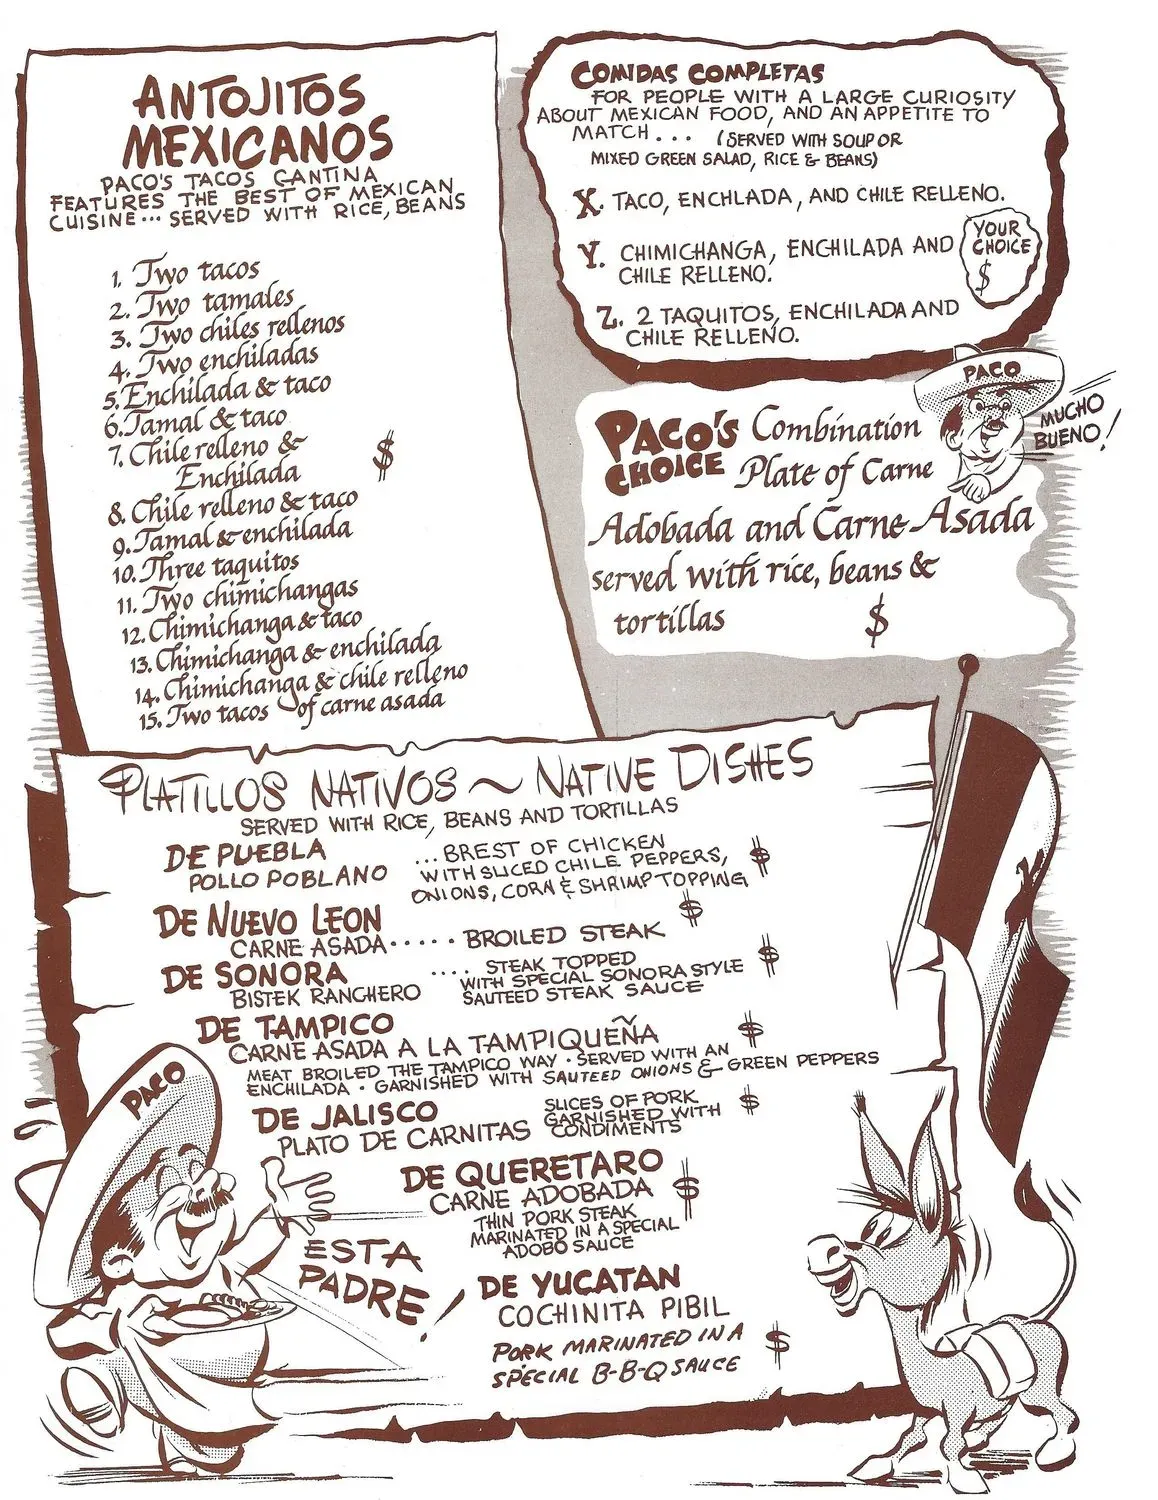 ANTOJITOS
MEXICANOS
PACO'S TACOS CANTINA
FEATURES THE BEST OF MEXICAN
CUISINE... SERVED WITH RICE, BEANS
1. Two tacos
2. Two tamales
3. Two chiles rellenos
4. Two enchiladas
5. Enchilada & taco
6. Tamal & taco
7. Chile relleno &
Enchilada
$
8. Chile relleno & taco
9. Tamal & enchilada
10. Three taquitos
11. Two chimichangas
12. Chimichanga & taco
13. Chimichanga & enchilada
14. Chimichanga & chile relleno
15. Two tacos of carne asada
COMIDAS COMPLETAS
FOR PEOPLE WITH A LARGE CURIOSITY
ABOUT MEXICAN FOOD, AND AN APPETITE TO
MATCH... (SERVED WITH SOUP OR
MIXED GREEN SALAD, RICE & BEANS)
X. TACO, ENCHLADA, AND CHILE RELLENO.
Y. CHIMICHANGA, ENCHILADA AND
CHILE RELLENO.
YOUR
CHOICE
$
Z. 2 TAQUITOS, ENCHILADA AND
CHILE RELLENO.
PACO
MUCHO
BUENO!
PACO'S
CHOICE
Combination
Plate of Carne
Adobada and Carne Asada
served with rice, beans &
tortillas
$
PLATILLOS NATIVOS ~ NATIVE DISHES
SERVED WITH RICE, BEANS AND TORTILLAS
DE PUEBLA
POLLO POBLANO
...BREST OF CHICKEN
WITH SLICED CHILE PEPPERS,
ONIONS, CORN & SHRIMP TOPPING
$
DE NUEVO LEON
CARNE ASADA..... BROILED STEAK
$
DE SONORA
BISTEK RANCHERO
.... STEAK TOPPED
WITH SPECIAL SONORA STYLE
SAUTEED STEAK SAUCE
$
DE TAMPICO
CARNE ASADA A LA TAMPIQUEÑA
$
MEAT BROILED THE TAMPICO WAY · SERVED WITH AN
ENCHILADA · GARNISHED WITH SAUTEED ONIONS & GREEN PEPPERS
DE JALISCO
PLATO DE CARNITAS
SLICES OF PORK
GARNISHED WITH
CONDIMENTS
$
DE QUERETARO
CARNE ADOBADA
$
THIN PORK STEAK
MARINATED IN A SPECIAL
ADOBO SAUCE
DE YUCATAN
COCHINITA PIBIL
PORK MARINATED IN A
SPECIAL B-B-Q SAUCE
$
PACO
ESTA
PADRE!